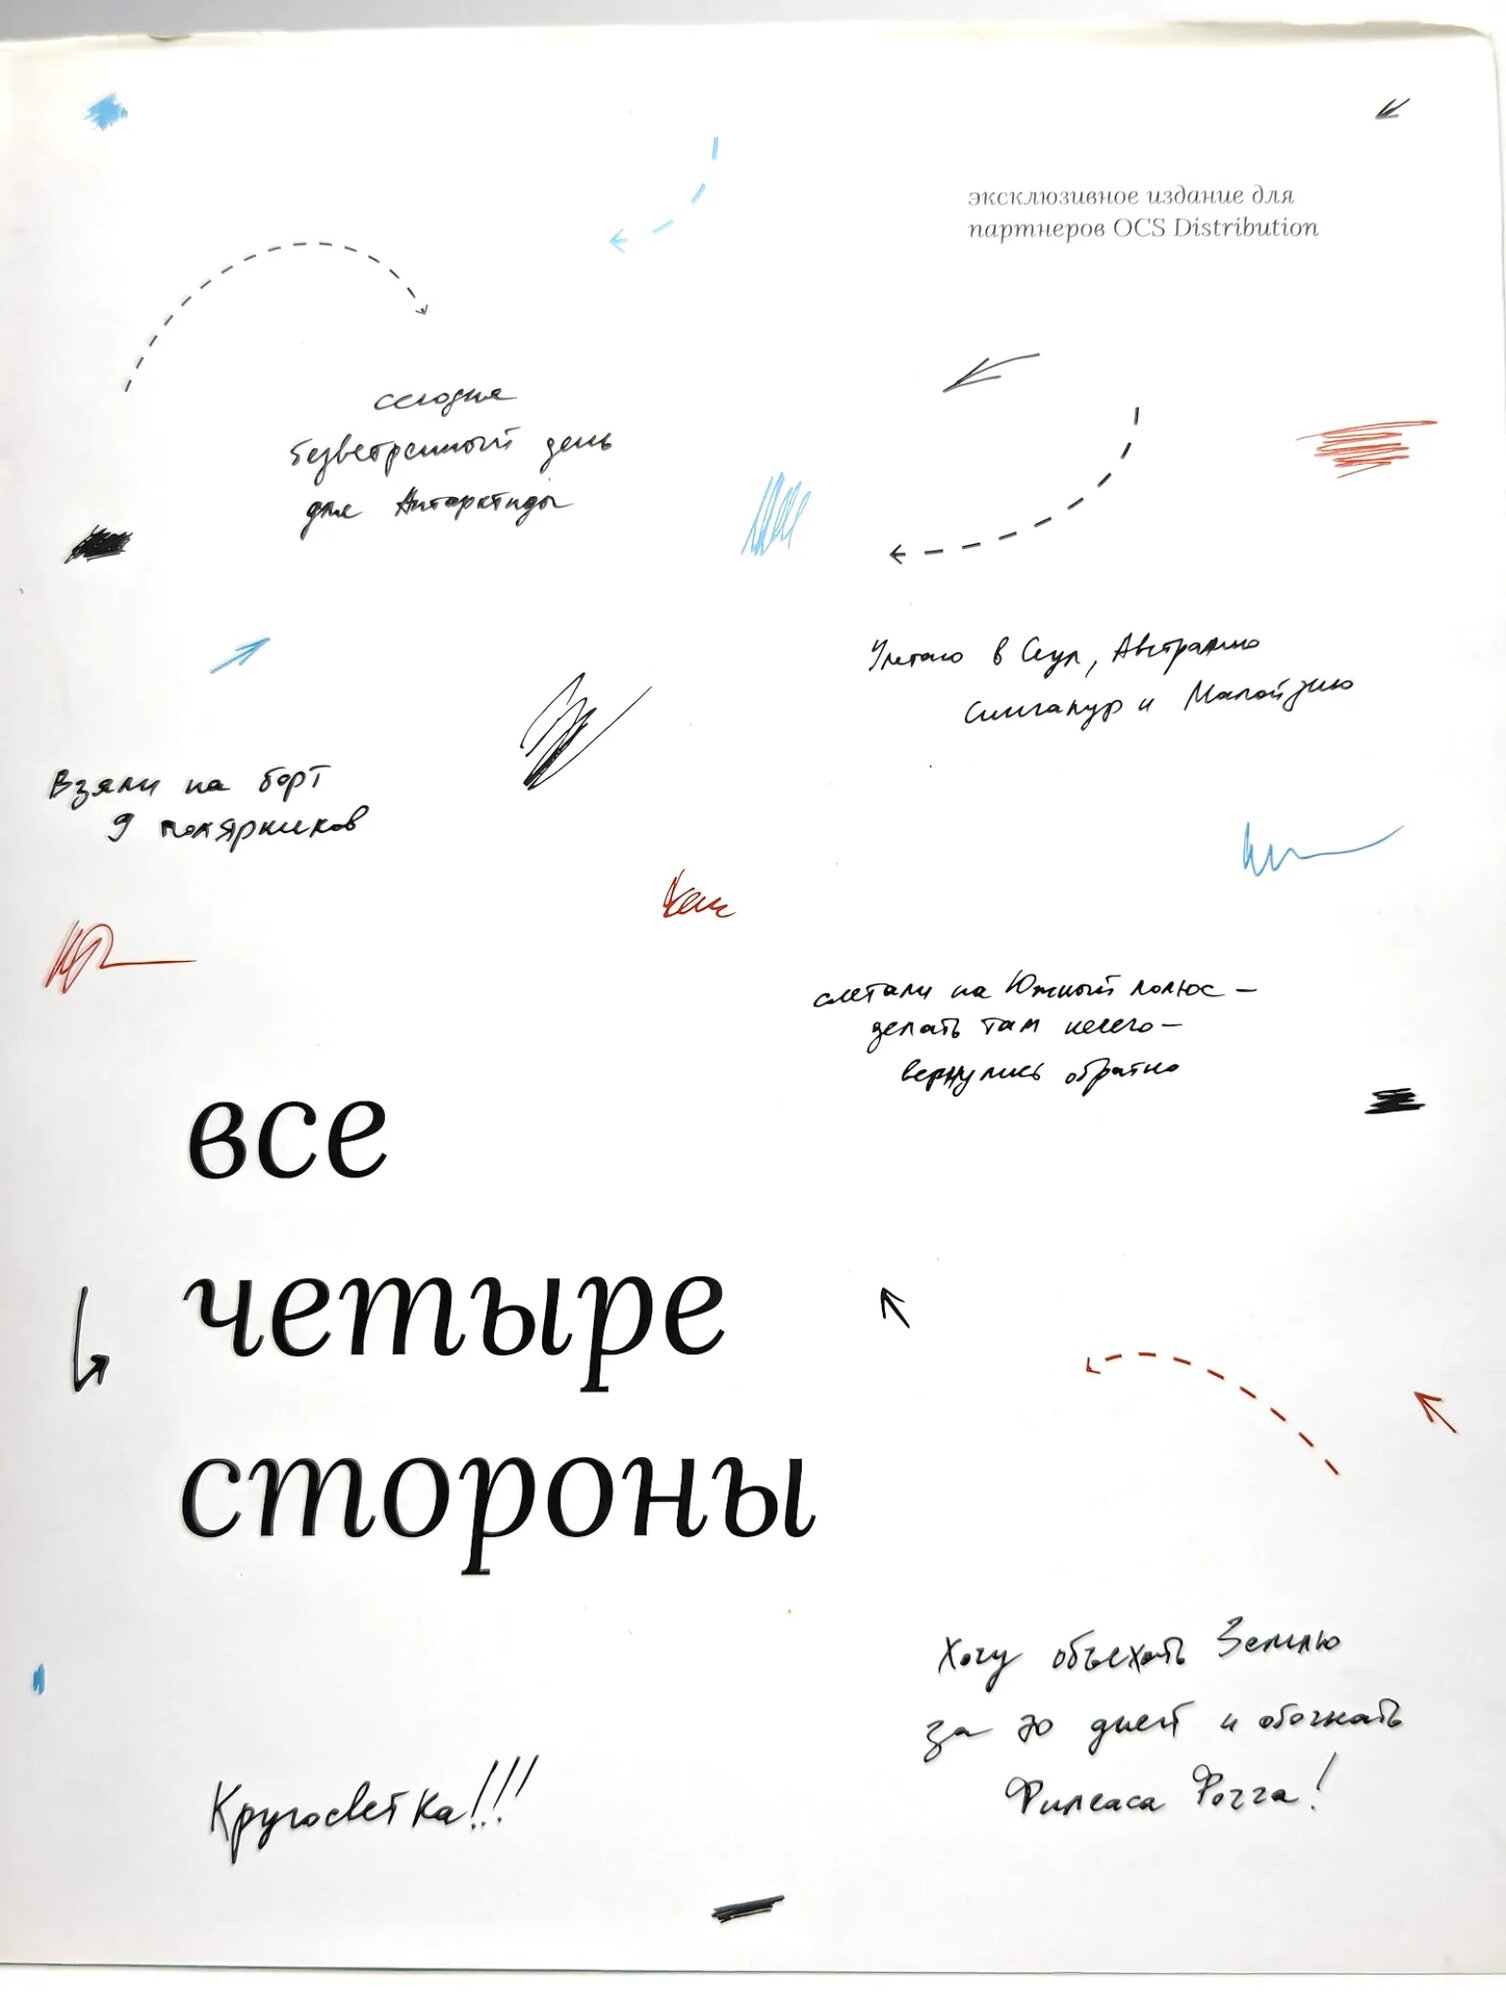 эксклюзивное издание для
партнеров OCS Distribution
сегодня
безветренный день
для Антарктиды
Улетаю в Сеул, Австралию
Сингапур и Малайзию
Взяли на борт
9 полярников
слетали на Южный полюс —
делать там нечего —
вернулись обратно
все
четыре
стороны
Хочу объехать Землю
за 70 дней и обогнать
Филеаса Фогга!
Кругосветка!!!